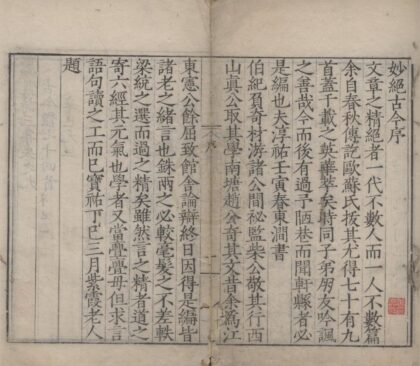 妙絕古今序
文章之精絕者一代不數人而一人不數篇
余自春秋傳訖歐蘇氏拔其尤得七十有九
首蓋千載之英華萃矣時同子弟朋友吟諷
之善哉今而後有過予陋巷而聞軒縣者必
是編也夫淳祐壬寅春東澗書
伯紀負奇材游諸公間祕監柴公敬其行西
山真公取其學南塘趙公奇其文昔余為江
東憲公餘屈致館舍論辯終日因得是編皆
諸老之緒言也銖兩之必較毫髮之不差軼
梁統之選而過之精矣雖然言之精者道之
寄六經其元氣也學者又當亹亹毋但求言
語句讀之工而已寶祐丁巳三月紫霞老人
題